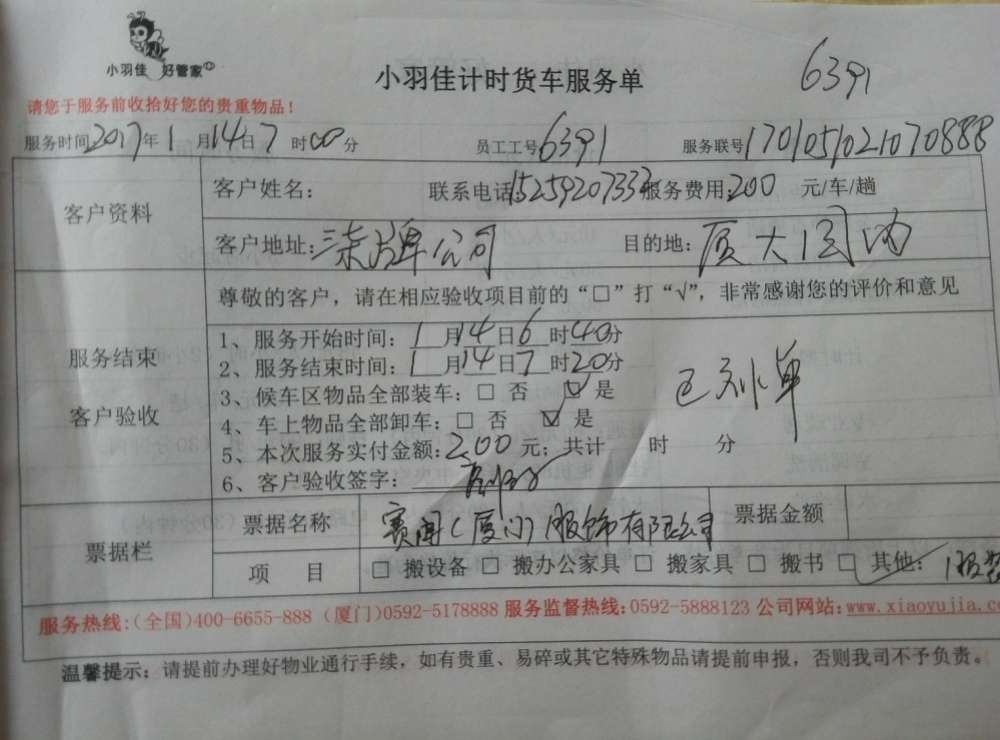 小羽佳 好管家
小羽佳计时货车服务单
6391
请您于服务前收拾好您的贵重物品！
服务时间2017年1月14日7时00分 员工工号6391 服务联号1701051021070888
客户资料
客户姓名： 联系电话15259207333服务费用200 元/车/趟
客户地址:柒牌公司 目的地：厦大国内
服务结束
客户验收
尊敬的客户，请在相应验收项目前的“□”打“√”，非常感谢您的评价和意见
1、服务开始时间：1月14日6时40分
2、服务结束时间：1月14日7时20分
3、候车区物品全部装车：□ 否 ☑ 是
4、车上物品全部卸车：□ 否 ☑ 是
5、本次服务实付金额：200元；共计 时 分
6、客户验收签字：
已刷单
票据栏
票据名称 赛闻(厦门)服饰有限公司 票据金额
项 目 □ 搬设备 □ 搬办公家具 □ 搬家具 □ 搬书 □ 其他： 服装
服务热线:(全国)400-6655-888 (厦门)0592-5178888 服务监督热线:0592-5888123 公司网站:www.xiaoyujia.co
温馨提示：请提前办理好物业通行手续，如有贵重、易碎或其它特殊物品请提前申报，否则我司不予负责。